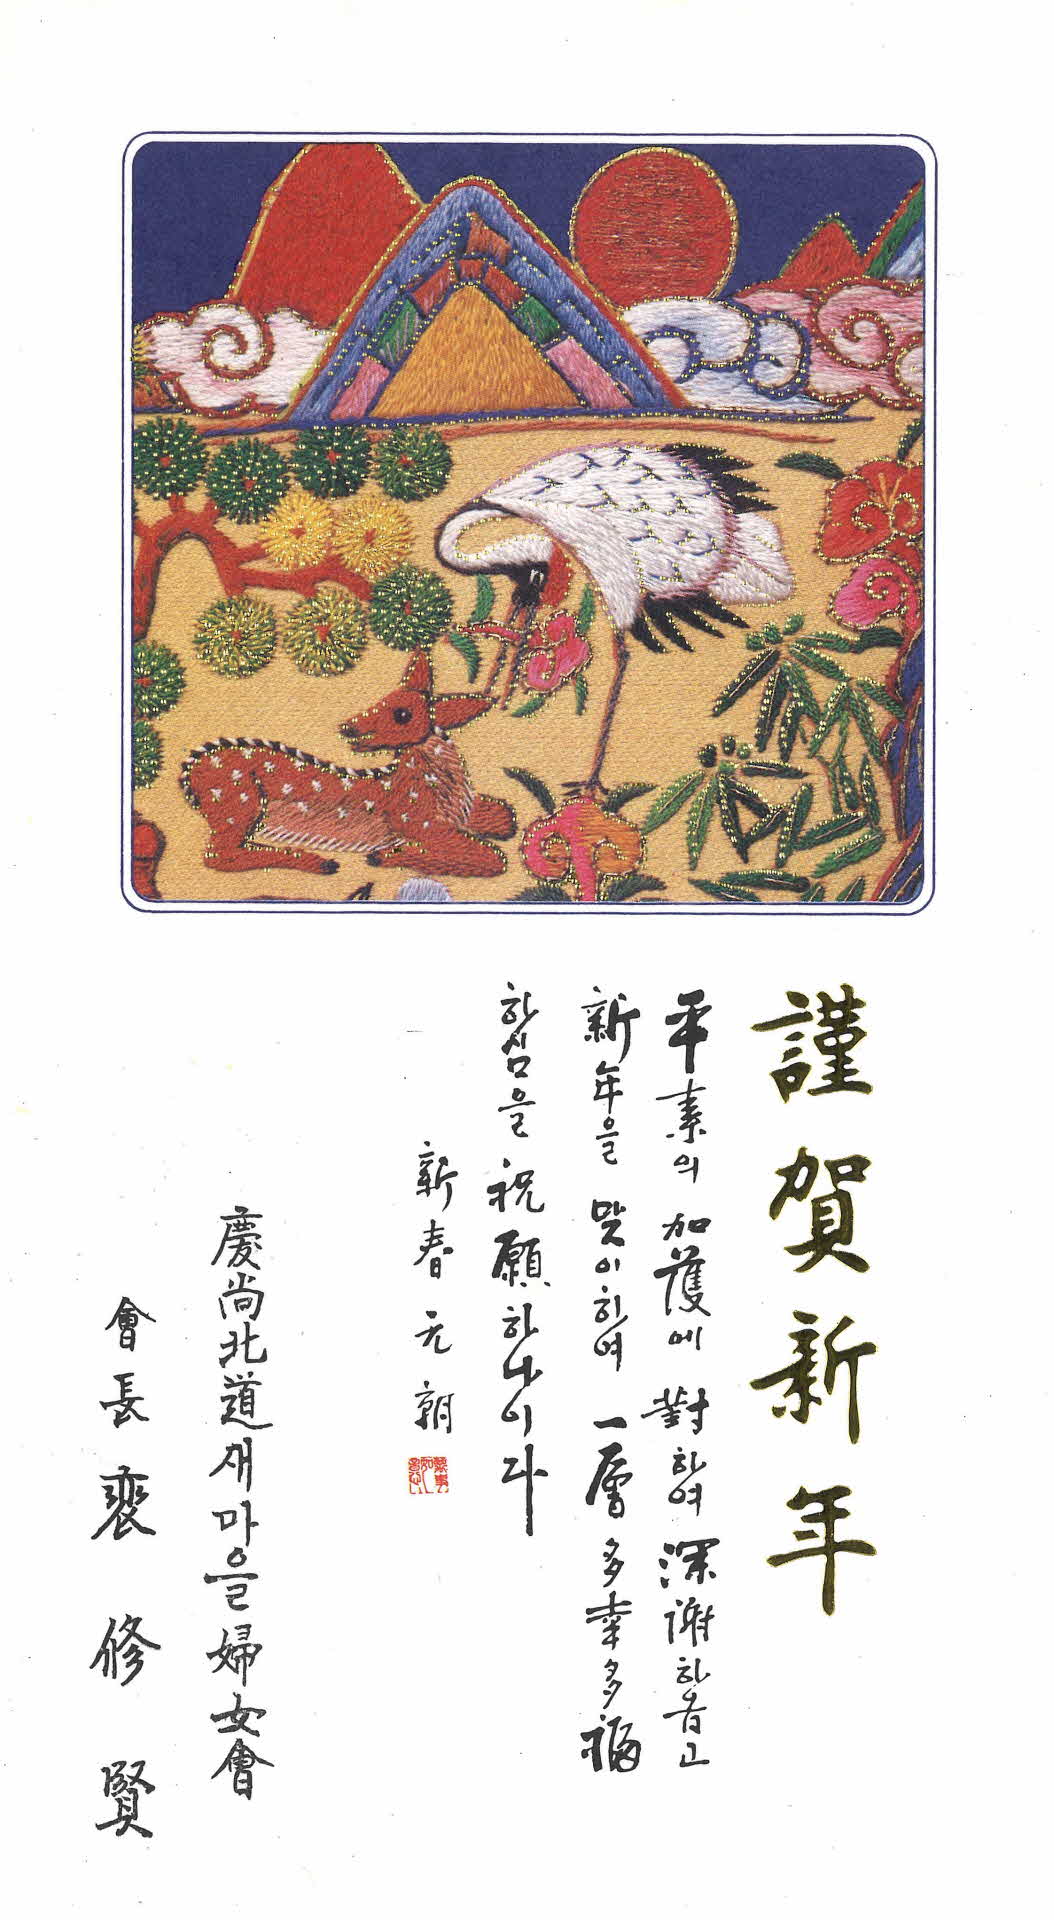 謹賀新年
平素의 加護에 對하여 深謝하옵고
新年을 맞이하여 一層 多幸多福
하심을 祝願하나이다
新春元朝
慶尚北道새마을婦女會
會長 裵修賢